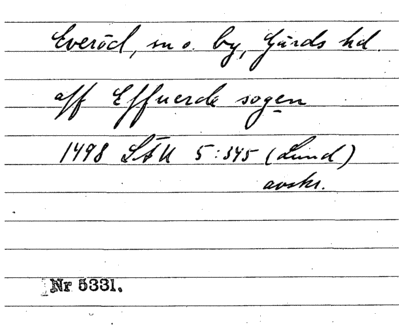 Everöd, sn o. by, Gärds hd.
aff Effuerde sogen
1498 LÄU 5:345 (Lund)
avskr.
Nr 5331.